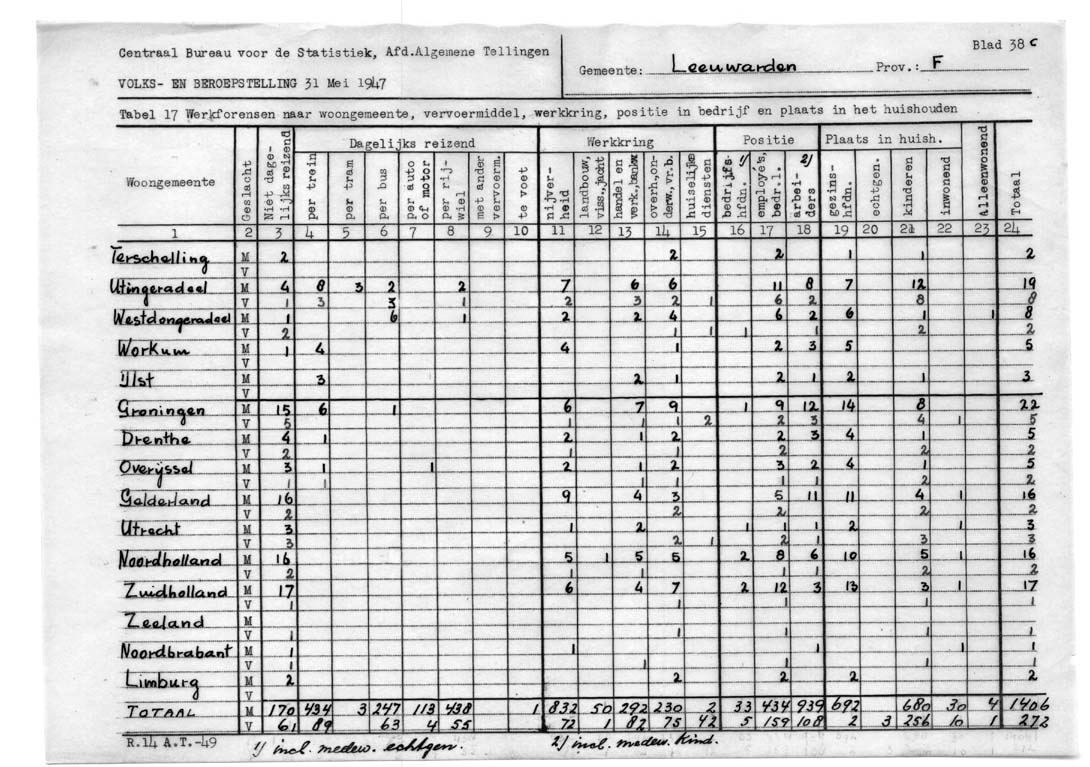 Centraal Bureau voor de Statistiek, Afd.Algemene Tellingen
VOLKS- EN BEROEPSTELLING 31 Mei 1947
Gemeente: Leeuwarden Prov.: F
Blad 38 c
Tabel 17 Werkforensen naar woongemeente, vervoermiddel, werkkring, positie in bedrijf en plaats in het huishouden
Dagelijks reizend Werkkring Positie Plaats in huish.
Woongemeente Geslacht Niet dage-lijks reizend per trein per tram per bus per auto of motor per rij-wiel met ander vervoerm. te voet nijver-heid landbouw, viss.,jacht handel en verk.,bankw. overh.,on-derw.,vr.b. huiselijke diensten bedrijfs-hfdn. 1) employé's, bedr.l. arbei-ders 2) gezins-hfdn. echtgen. kinderen inwonend Alleenwonend Totaal
1 2 3 4 5 6 7 8 9 10 11 12 13 14 15 16 17 18 19 20 21 22 23 24
Terschelling M 2 2 2 1 1 2
V
Utingeradeel M 4 8 3 2 2 7 6 6 11 8 7 12 19
V 1 3 3 1 2 3 2 1 6 2 8 8
Westdongeradeel M 1 6 1 2 2 4 6 2 6 1 1 8
V 2 1 1 1 1 2 2
Workum M 1 4 4 1 2 3 5 5
V
IJlst M 3 2 1 2 1 2 1 3
V
Groningen M 15 6 1 6 7 9 1 9 12 14 8 22
V 5 1 1 1 2 2 3 4 1 5
Drenthe M 4 1 2 1 2 2 3 4 1 5
V 2 1 1 2 2 2
Overijssel M 3 1 1 2 1 2 3 2 4 1 5
V 1 1 1 1 1 1 2 2
Gelderland M 16 9 4 3 5 11 11 4 1 16
V 2 2 2 2 2
Utrecht M 3 1 2 1 1 1 2 1 3
V 3 2 1 2 1 3 3
Noordholland M 16 5 1 5 5 2 8 6 10 5 1 16
V 2 1 1 1 1 2 2
Zuidholland M 17 6 4 7 2 12 3 13 3 1 17
V 1 1 1 1 1
Zeeland M
V 1 1 1 1 1
Noordbrabant M 1 1 1 1 1
V 1 1 1 1 1
Limburg M 2 2 2 2 2
V
TOTAAL M 170 434 3 247 113 438 1 832 50 292 230 2 33 434 939 692 680 30 4 1406
V 61 89 63 4 55 72 1 82 75 42 5 159 108 2 3 256 10 1 272
R.14 A.T.-49
1) incl. medew. echtgen. 2) incl. medew. kind.